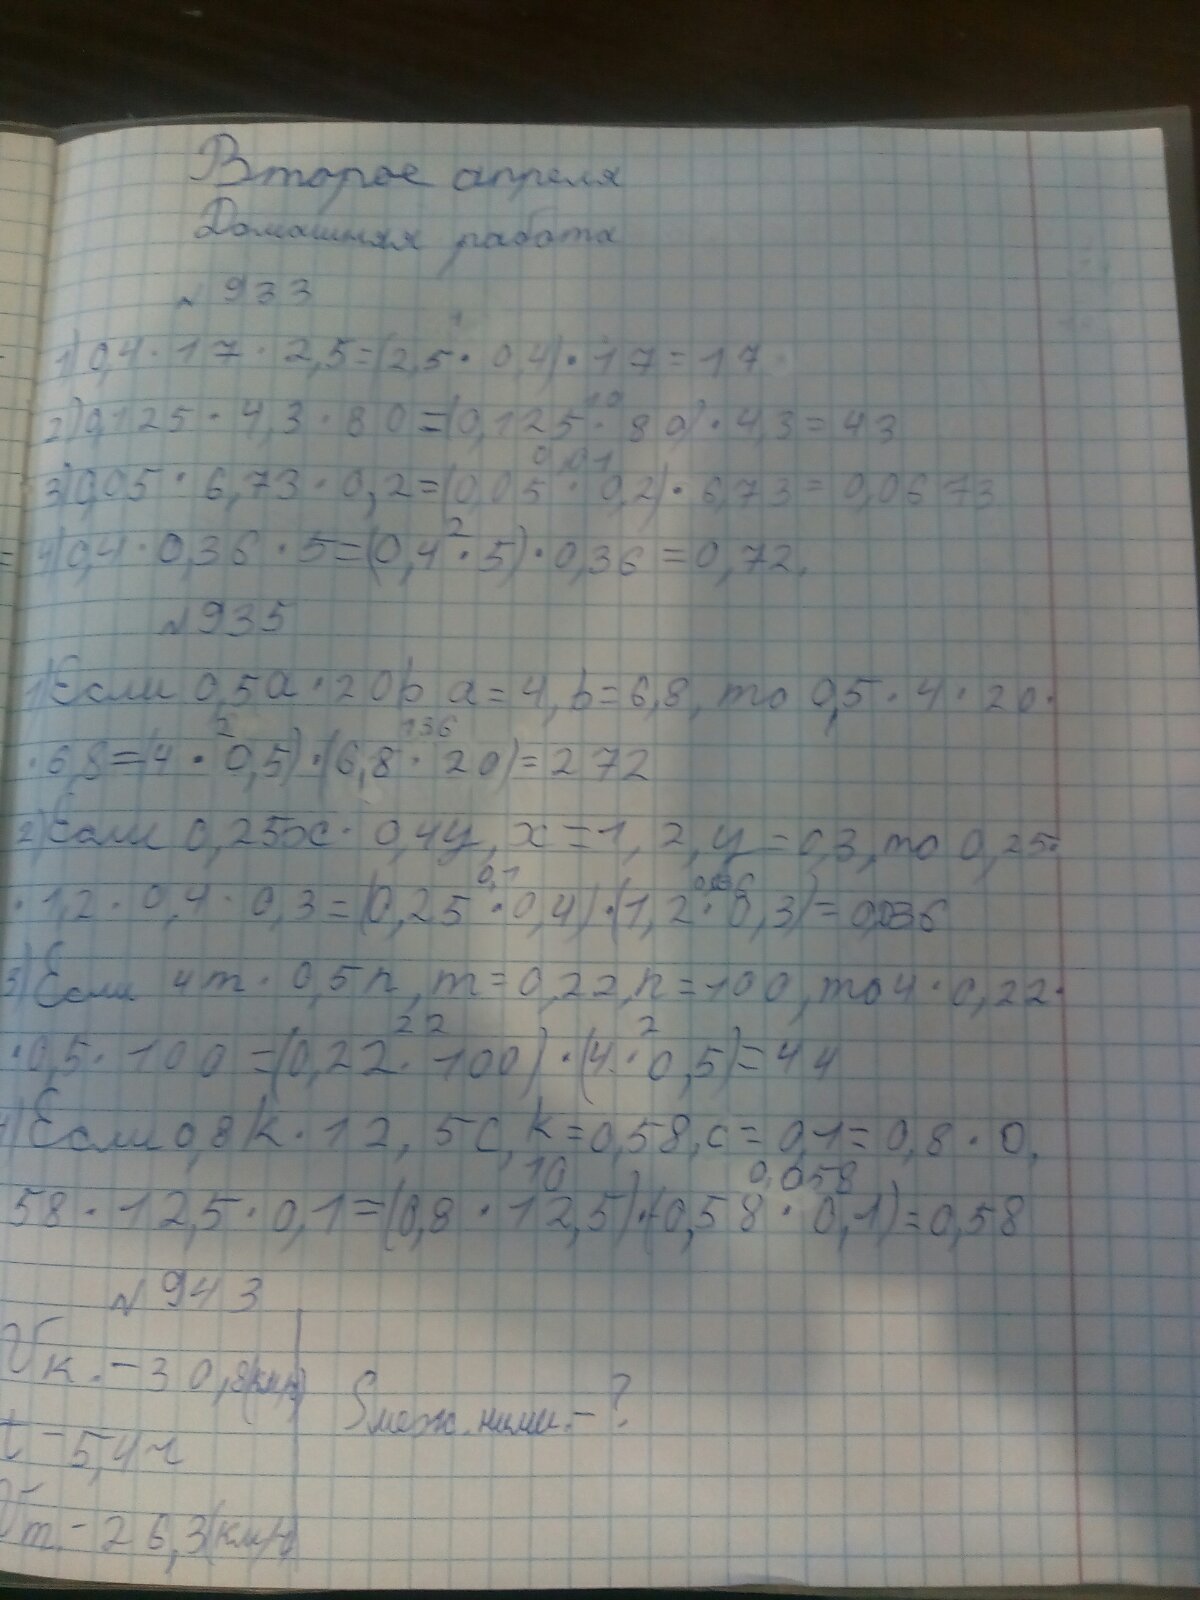 Второе апреля
Домашняя работа
№933
1
1) 0,4·17·2,5=(2,5·0,4)·17=17
10
2) 0,125·4,3·80=(0,125·80)·4,3=43
0,01
3) 0,05·6,73·0,2=(0,05·0,2)·6,73=0,0673
2
4) 0,4·0,36·5=(0,4·5)·0,36=0,72.
№935
1) Если 0,5a·20b a=4, b=6,8, то 0,5·4·20·
2 136
·6,8=(4·0,5)·(6,8·20)=272
2) Если 0,25x·0,4y, x=1,2, y=0,3, то 0,25·
0,1
·1,2·0,4·0,3=(0,25·0,4)·(1,2·0,3)=0,036
3) Если 4m·0,5n, m=0,22, n=100, то 4·0,22·
22 2
·0,5·100=(0,22·100)·(4·0,5)=44
4) Если 0,8k·12,5c, k=0,58, c=0,1=0,8·0,
10 0,058
58·12,5·0,1=(0,8·12,5)·(0,58·0,1)=0,58
№943
Vк.-30,8(км/ч)
Sмеж. ними.-?
t-5,4ч
Vт.-26,3(км/ч)